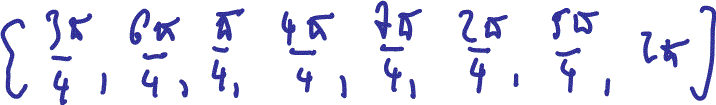 { 3π/4, 6π/4, π/4, 4π/4, 7π/4, 2π/4, 5π/4, 2π }